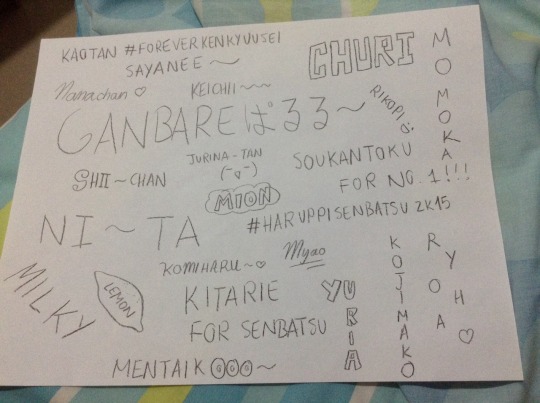 KAOTAN #FOREVERKENKYUUSEI
SAYANEE~
CHURI
MOMOKA
Nanachan ♡
KEICHII~~
RIKOPI
GANBAREぱるる~
JURINA-TAN
SHII~CHAN
MION
SOUKANTOKU
FOR NO. 1!!!
NI~TA
#HARUPPISENBATSU 2K15
KOMIHARU~♡
Myao
MILKY
LEMON
KITARIE
FOR SENBATSU
YURIA
KOJIMAKO
RYOHA ♡
MENTAIKOOO~